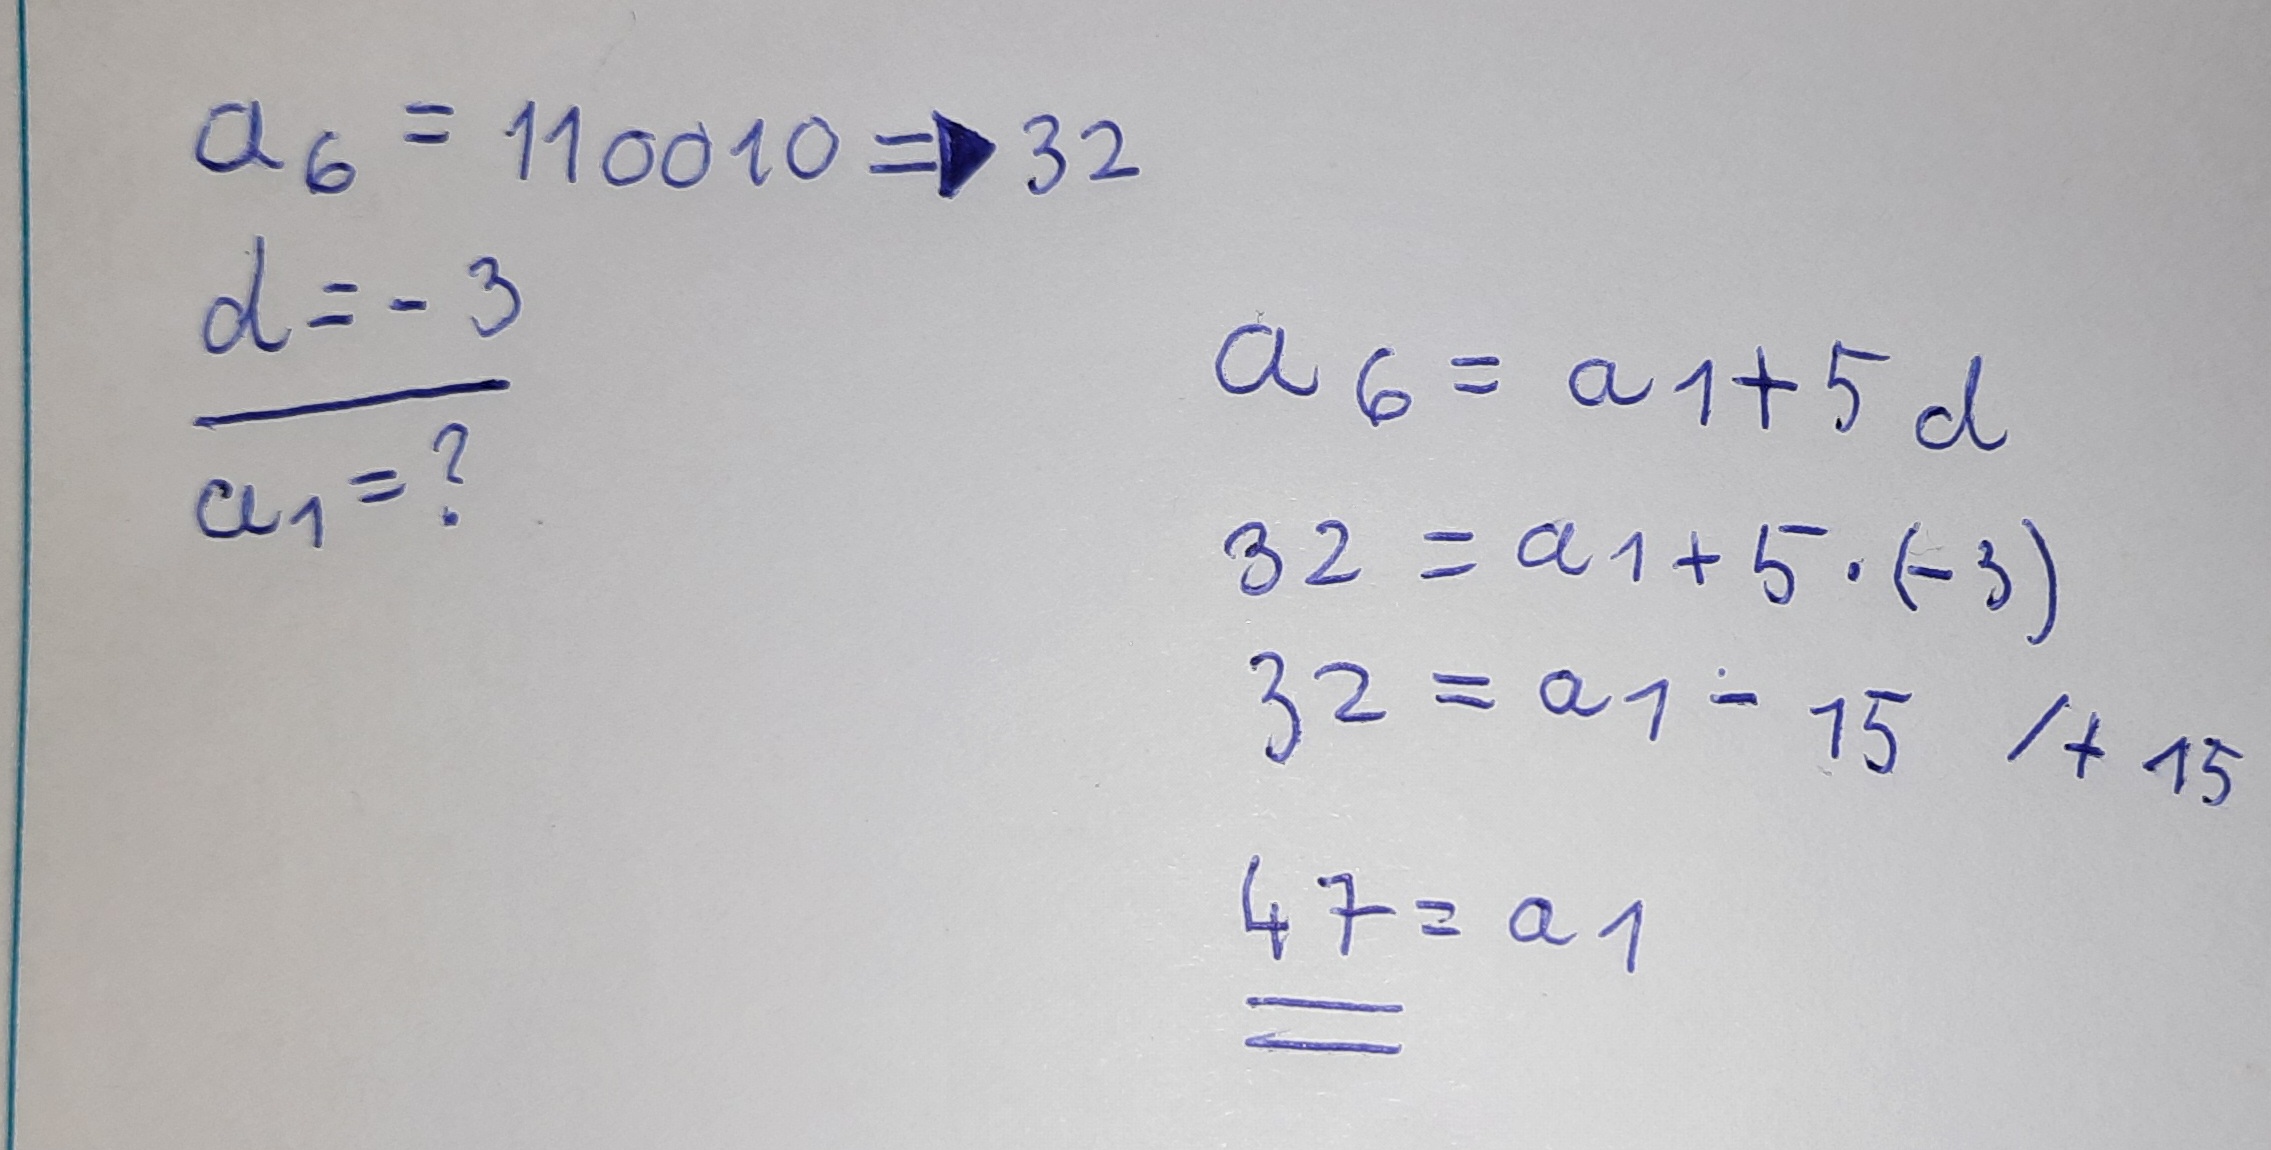 a6 = 110010 => 32
d = - 3
a1 = ?
a6 = a1 + 5d
32 = a1 + 5 · (-3)
32 = a1 - 15 / + 15
47 = a1